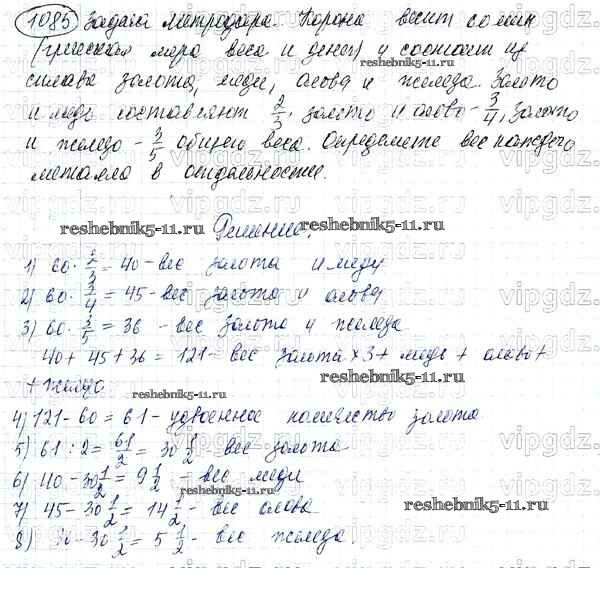 1085 Задача Метродора. Корона весит 60 мин
(греческая мера веса и денег) и состоит из
сплава золота, меди, олова и железа. Золото
и медь составляют 2/3, золото и олово - 3/4, золото
и железо - 3/5 общего веса. Определите вес каждого
металла в отдельности.
reshebnik5-11.ru reshebnik5-11.ru
Решение.
1) 60 · 2/3 = 40 - вес золота и меди
2) 60 · 3/4 = 45 - вес золота и олова
3) 60 · 3/5 = 36 - вес золота и железа
40 + 45 + 36 = 121 - вес золота × 3 + медь + олово +
+ железо
reshebnik5-11.ru
reshebnik5-11.ru
4) 121 - 60 = 61 - удвоенное количество золота
5) 61 : 2 = 61/2 = 30 1/2 вес золота
6) 40 - 30 1/2 = 9 1/2 - вес меди
reshebnik5-11.ru
7) 45 - 30 1/2 = 14 1/2 - вес олова
reshebnik5-11.ru
8) 36 - 30 1/2 = 5 1/2 - вес железа.